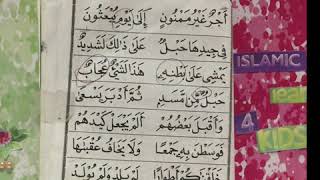 أَجْرٌ غَيْرُ مَمْنُونٍ إِلَى يَوْمِ يُبْعَثُونَ
فِي جِيدِهَا حَبْلٌ عَلَى ذَلِكَ لَشَهِيدٌ
يَمْشِي عَلَى بَطْنِهِ هَذَا لَشَيْءٌ عُجَابٌ
حَبْلٌ مِّن مَّسَدٍ ثُمَّ أَدْبَرَ يَسْعَى
وَأَقْبَلَ بَعْضُهُمْ أَلَمْ يَجْعَلْ كَيْدَهُمْ
فَوَسَطْنَ بِهِ جَمْعًا وَلَا يَخَافُ عُقْبَاهَا
لَمْ يَلِدْ وَلَمْ يُولَدْ
ISLAMIC
4
KIDS